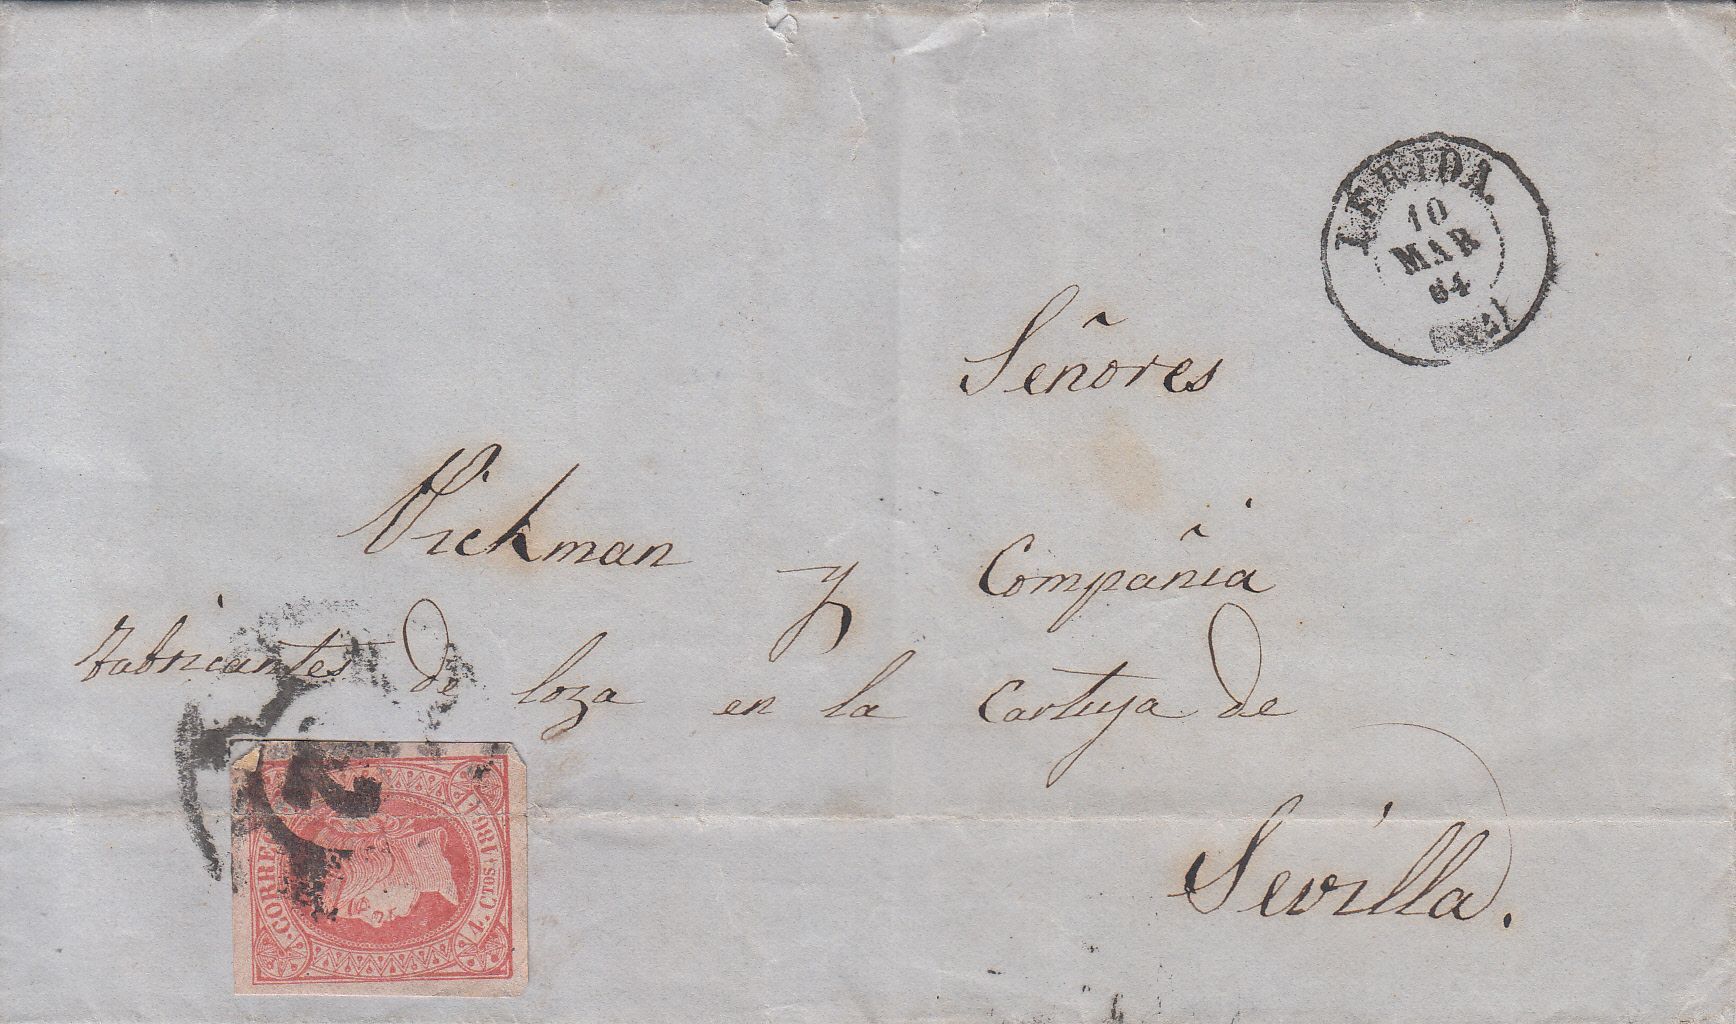 LERIDA.
10
MAR
64
Señores
Vickman y Compañia
Fabricantes de loza en la Cartuja de
Sevilla.
CORREOS
4. CTOS
1864